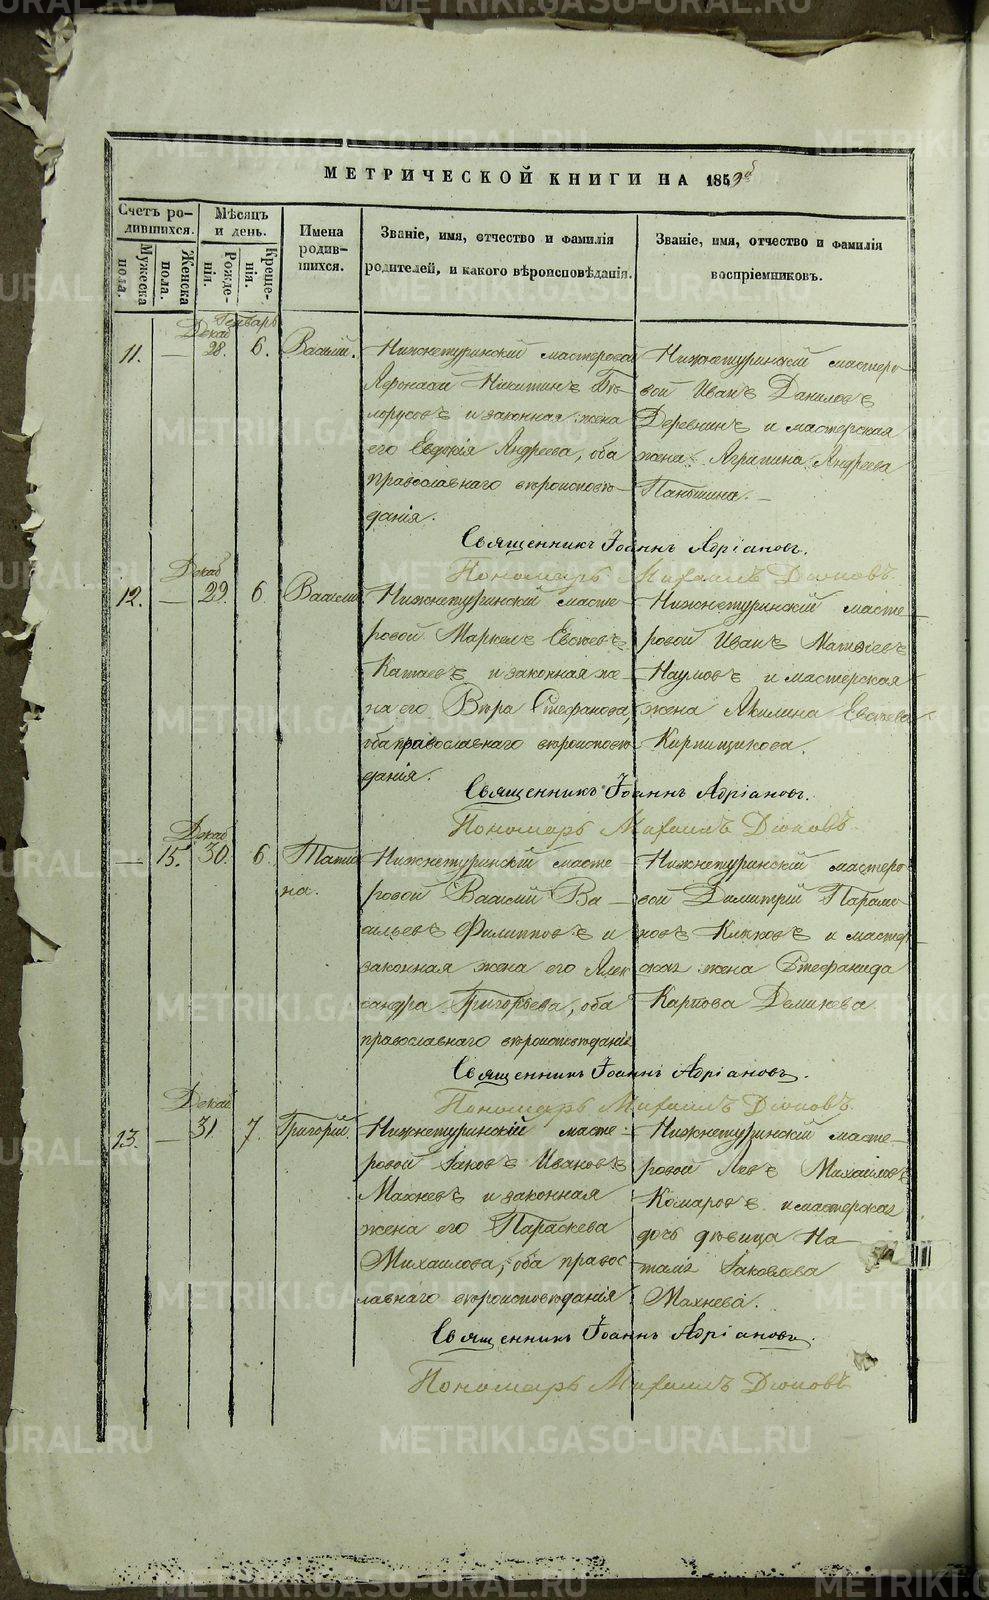 МЕТРИЧЕСКОЙ КНИГИ НА 1859й
Счетъ ро-
дившихся.
Мужеска
пола.
Женска
пола.
Мѣсяцъ
и день.
Рожде-
нія.
Креще-
нія.
Имена
родив-
шихся.
Званіе, имя, отчество и фамилія
родителей, и какого вѣроисповѣданія.
Званіе, имя, отчество и фамилія
воспріемниковъ.
Генварь
Декаб
11. — 28. 6. Василій.
Нижнетуринскій мастеровой
Афонасій Никитинъ Бѣ-
лорусовъ и законная жена
его Евдокія Андреева, оба
православнаго вѣроисповѣ-
данія.
Нижнетуринскій мастеро-
вой Иванъ Даниловъ
Деревнинъ и мастерская
жена Аграпина Андреева
Паньшина.
Священникъ Іоаннъ Адріановъ.
Пономарь Михаилъ Діоновъ.
Декаб
12. — 29. 6. Василій
Нижнетуринскій масте-
ровой Маркелъ Евсѣевъ
Катаевъ и законная же-
на его Вѣра Стефанова,
оба православнаго вѣроисповѣ-
данія.
Нижнетуринскій масте-
ровой Иванъ Матвіевъ
Наумовъ и мастерская
жена Акилина Евсѣева
Кирпищикова.
Священникъ Іоаннъ Адріановъ.
Пономарь Михаилъ Діоновъ.
Декаб
— 15. 30. 6. Татіа
на.
Нижнетуринскій масте
ровой Василій Ва-
сильевъ Филипповъ и
законная жена его Алек
сандра Григорьева, оба
православнаго вѣроисповѣданія
Нижнетуринскій мастеро-
вой Димитрій Парамо-
новъ Клюковъ и мастер-
ская жена Стефанида
Карпова Демидова
Священникъ Іоаннъ Адріановъ.
Пономарь Михаилъ Діоновъ.
Декаб
13. — 31 7. Григорій.
Нижнетуринскій масте-
ровой Іаковъ Ивановъ
Махневъ и законная
жена его Параскева
Михаилова, оба правос-
лавнаго вѣроисповѣданія
Нижнетуринскій масте-
ровой Левъ Михаиловъ
Комаровъ и мастерская
дочь дѣвица На-
талія Іаковлева
Махнева.
Священникъ Іоаннъ Адріановъ.
Пономарь Михаилъ Діоновъ
METRIKI.GASO-URAL.RU